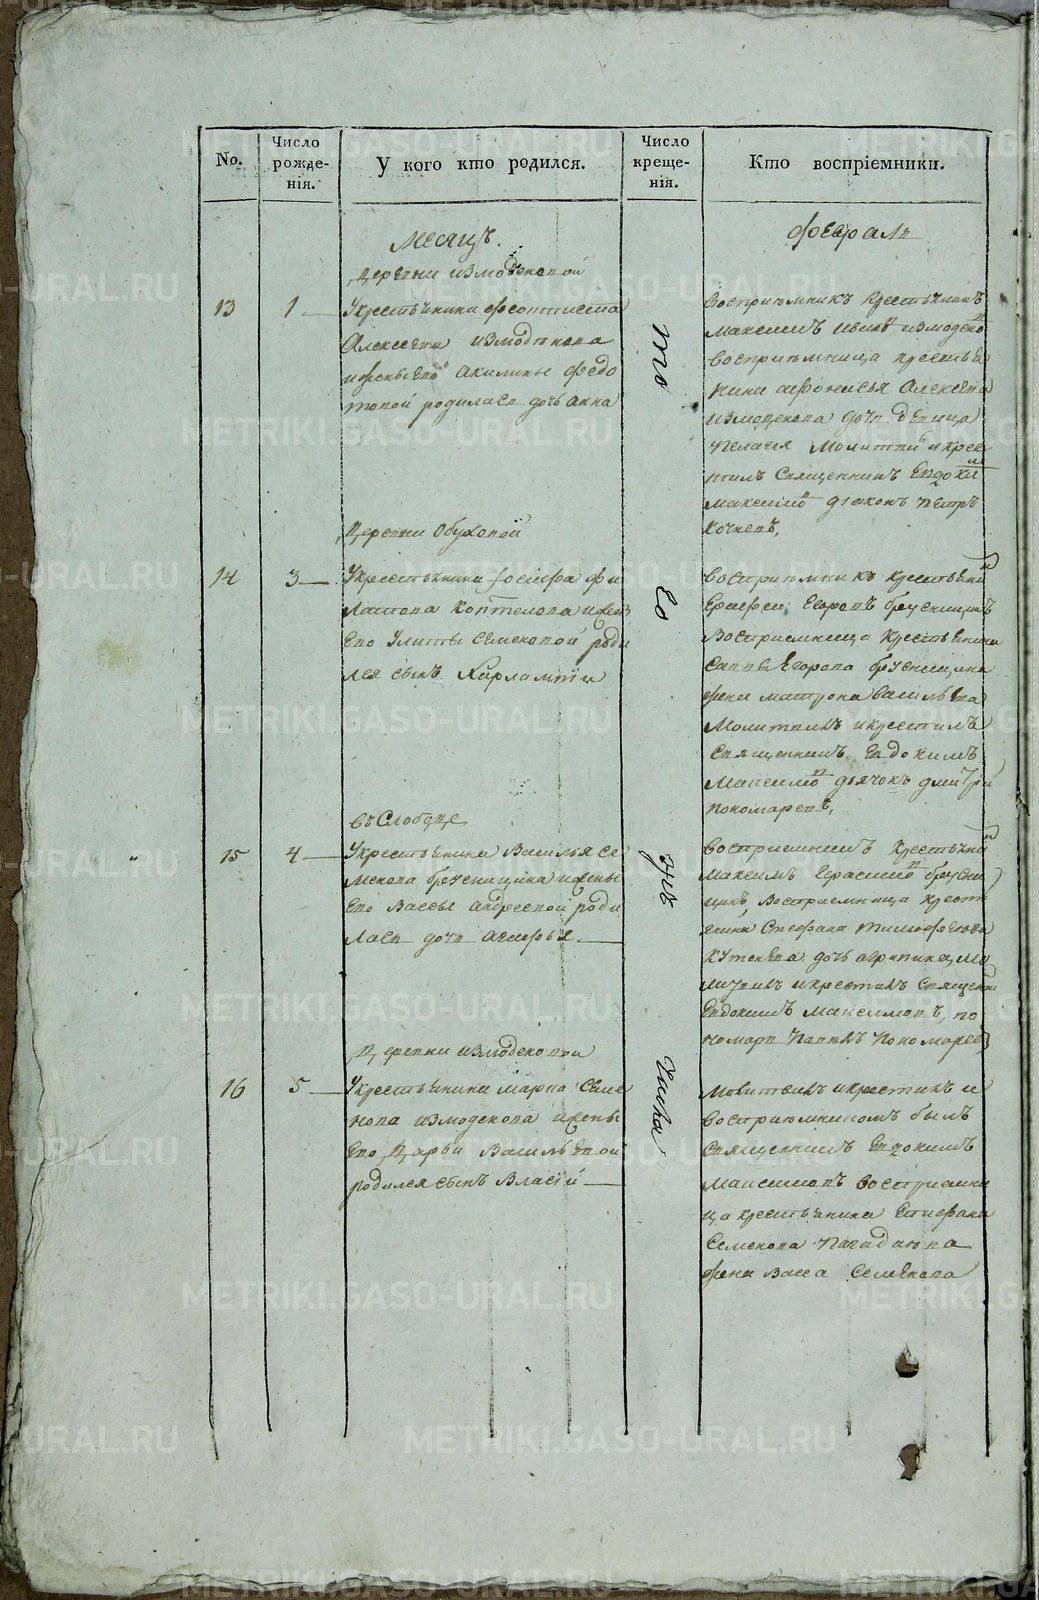 No.
Число рожденія.
У кого кто родился.
Число крещенія.
Кто воспріемники.
Месяцъ
февраль
Деревни измоденовой
13
1
У крестьянина феоктиста
Алексеева измоденова
и жены его акилины федо
товой родилась дочь анна
воспріемникъ крестьянинъ
максимъ
воспріемница крестья
нина афонасья Алексева
измоденова дочь девица
пелагея молитвил и крес
тилъ священникъ Евдоким
максимов дьяконъ петръ
Кочневъ,
то
го
же
числа
Деревни Обуховой
14
3
У крестьянина Іосифа фи
латова Коптелова и жены
его Улиты Семеновой роди
лся сынъ Харлампіи
воспріемникъ крестьянин
Егоровъ брусницинъ
воспріемница крестьянина
Саввы Егорова брусницина
жена матрона васильева
молитвилъ и крестилъ
священникъ Евдокимъ
Максимов дьячокъ дмитрій
пономаревъ,
въ Слободе
15
4
У крестьянина василья се
менова брусницина и жены
его вассы андреевой роди
лась дочь агафья
воспріемникъ крестьянин
максимъ Герасимов брусни
цинъ, воспріемница крестья
нина Стефана тимофеева
кутенева дочь агрипина, мо
литвилъ и крестилъ священник
Евдокимъ максимовъ, по
номарь павелъ пономарев
Деревни измоденовои
16
5
У крестьянина марка семе
нова измоденова и жены
его Дарьи васильевой
родился сынъ Власій
молитвилъ и крестилъ и
воспріемникомъ былъ
священникъ Евдокимъ
максимовъ воспріемни
ца крестьянина Стефана
Семенова
жена васса семенова
METRIKI.GASO-URAL.RU